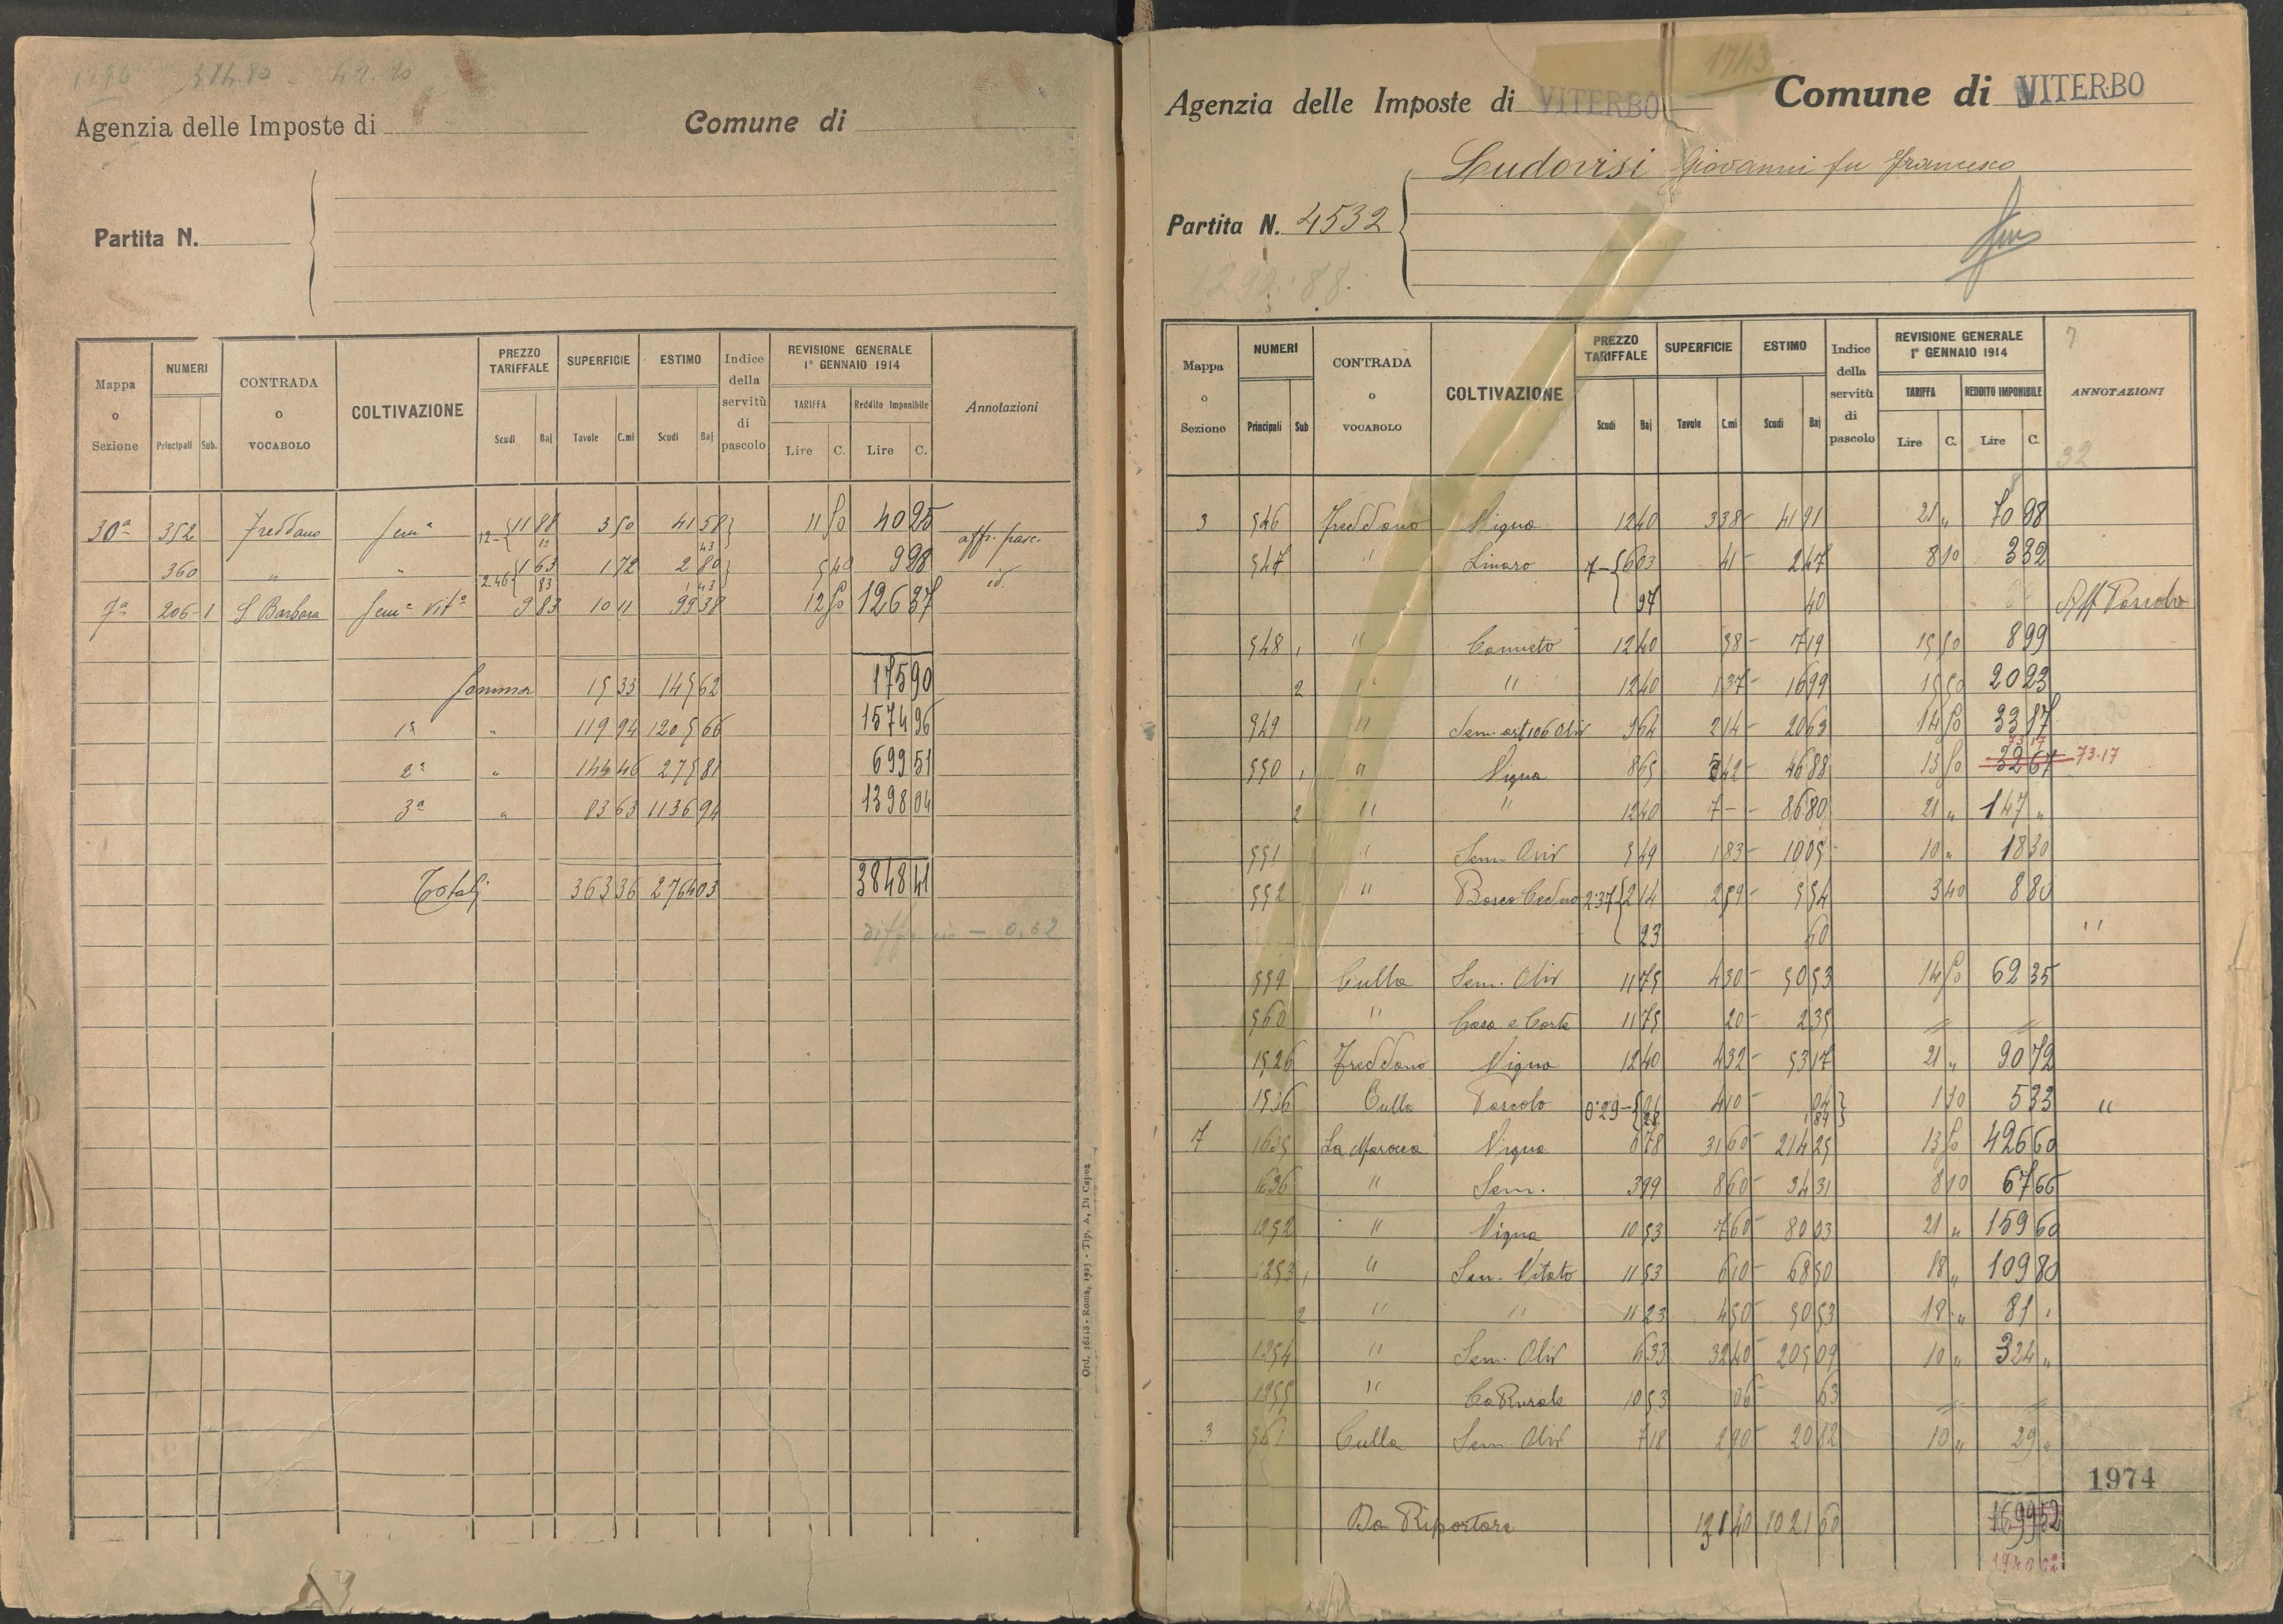 Agenzia delle Imposte di
Comune di
Partita N.
Mappa o Sezione
NUMERI
Principali Sub.
CONTRADA o VOCABOLO
COLTIVAZIONE
PREZZO TARIFFALE
Scudi Baj
SUPERFICIE
Tavole C.mi
ESTIMO
Scudi Baj
Indice della servitù di pascolo
REVISIONE GENERALE
1° GENNAIO 1914
TARIFFA
Lire C.
Reddito Imponibile
Lire C.
Annotazioni
30ª 352 Freddano Sem.e 12- 11 88 12 3 50 41 58 43 11 50 40 25 aff. pasc.
360 " " 2.46 1 63 83 1 72 2 80 1 43 5 40 9 28 id.
7ª 206 1 S Barbara Sem.e Vit.o 9 83 10 11 99 38 12 50 126 37
Somma 15 33 145 62 175 90
1ª " 119 94 1205 66 1574 96
2ª " 144 46 275 81 699 51
3ª " 83 63 1136 94 1398 04
Totali 363 36 2764 03 3848 41
— 0,52
Ord. 16515 - Roma, 1925 - Tip. A. Di Capua
1743
Agenzia delle Imposte di VITERBO
Comune di VITERBO
Ludovisi Giovanni fu Francesco
Partita N. 4532
Mappa o Sezione
NUMERI
Principali Sub
CONTRADA o VOCABOLO
COLTIVAZIONE
PREZZO TARIFFALE
Scudi Baj
SUPERFICIE
Tavole C.mi
ESTIMO
Scudi Baj
Indice della servitù di pascolo
REVISIONE GENERALE
1° GENNAIO 1914
TARIFFA
Lire C.
REDDITO IMPONIBILE
Lire C.
ANNOTAZIONI
32
3 546 Freddano Vigna 12 40 3 38 41 91 21 " 70 98
547 " Linaro 7- 6 03 41 2 47 8 10 3 32
97 40 Aff Pascolo
548 1 " Canneto 12 40 58 7 19 15 50 8 99
2 " " 12 40 1 37 16 99 15 50 20 23
549 " 9 64 2 14 20 63 14 50 33 87
550 1 " Vigna 8 65 5 42 46 88 13 50 73.17
2 " " 12 40 7 - 86 80 21 " 147 "
551 " Sem Oliv 5 49 1 83 10 05 10 " 18 30
552 " Bosco Ceduo 2.37 2 14 2 59 5 54 3 40 8 80
23 60 "
559 Culla Sem. Oliv 11 75 4 30 50 53 14 50 62 35
560 " Casa e Corte 11 75 20 2 35
1526 Freddano Vigna 12 40 4 32 53 17 21 " 90 72
1536 Culla Pascolo 0.29 - 01 28 4 10 04 1 84 1 30 5 33 "
7 1635 La Marocca Vigna 6 78 31 60 214 25 13 50 426 60
1636 " Sem. 3 99 8 60 34 31 8 10 67 66
1252 " Vigna 10 53 7 60 80 03 21 " 159 60
1253 1 " Sem. Vitato 11 23 6 10 68 50 18 " 109 80
2 " " 11 23 4 50 50 53 18 " 81 "
1254 " Sem. Oliv 6 33 32 40 205 09 10 " 324 "
1255 " Ca Rurale 10 53 06 63
3 Culla Sem. Oliv 7 18 2 90 20 82 10 " 29 "
1974
Da Riportare 131 40 1021 60 1699 52